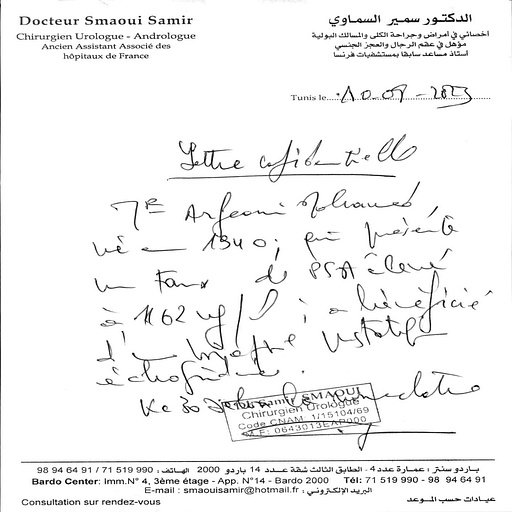 Docteur Smaoui Samir
Chirurgien Urologue - Andrologue
Ancien Assistant Associé des
hôpitaux de France
الدكتور سمير السماوي
أخصائي في أمراض وجراحة الكلى والمسالك البولية
مؤهل في عقم الرجال والعجز الجنسي
أستاذ مساعد سابقا بمستشفيات فرنسا
Tunis le 10-09-2023
Lettre confidentielle
Mr Mohamed
né en 1940, qui présente
un Taux de PSA élevé
à 1162 ng/l, a bénéficié
d'une
échoguidée.
Samir SMAOUI
Chirurgien Urologue
Code CNAM: 1/15104/69
M.F: 0643013EAP000
باردو سنتر : عمارة عدد 4 - الطابق الثالث شقة عدد 14 باردو 2000 الهاتف : 71 519 990 / 98 94 64 91
Bardo Center: Imm.N° 4, 3ème étage - App. N°14 - Bardo 2000 Tél: 71 519 990 - 98 94 64 91
E-mail : smaouisamir@hotmail.fr : البريد الإلكتروني
Consultation sur rendez-vous
عيادات حسب الموعد